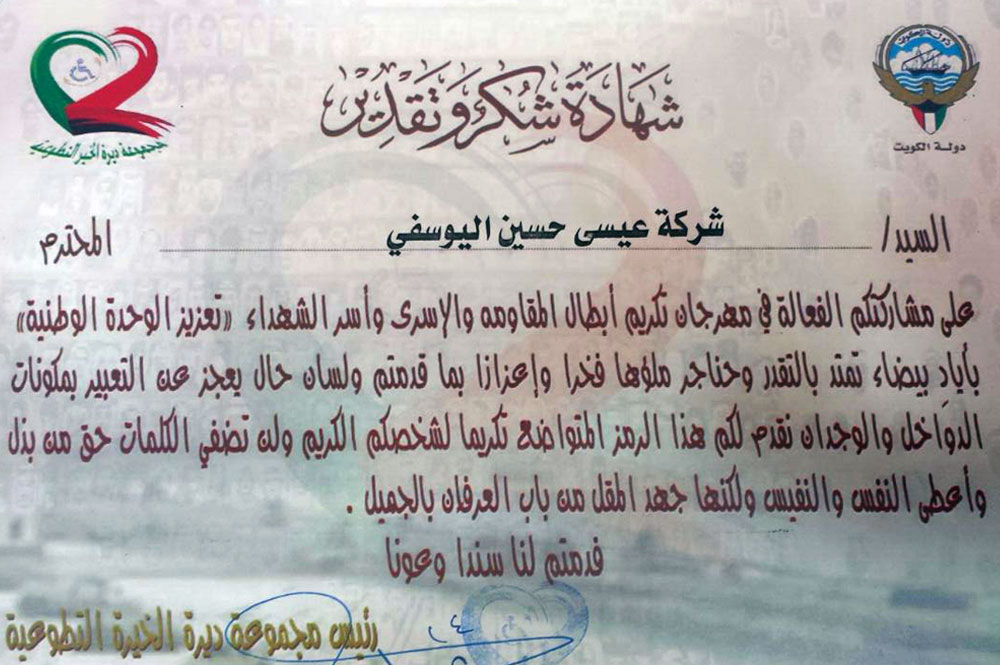 دولة الكويت
دولة الكويت
مجموعة ديرة الخير التطوعية
شهادة شكر وتقدير
السيد/ شركة عيسى حسين اليوسفي المحترم
على مشاركتكم الفعالة في مهرجان تكريم أبطال المقاومه والإسرى وأسر الشهداء «تعزيز الوحدة الوطنية»
بأيادِ بيضاء تمتد بالتقدر وحناجر ملؤها فخرا وإعزازا بما قدمتم ولسان حال يعجز عن التعبير بمكونات
الدواخل والوجدان نقدم لكم هذا الرمز المتواضع تكريما لشخصكم الكريم ولن تضفي الكلمات حق من بذل
وأعطى النفس والنفيس ولكنها جهد المقل من باب العرفان بالجميل .
فدمتم لنا سندا وعونا
رئيس مجموعة ديرة الخيرة التطوعية